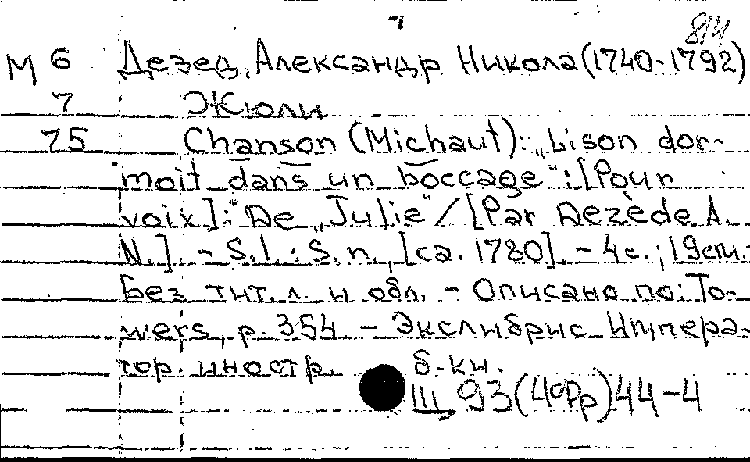 М 6 Дезед, Александр Никола (1740-1792)
7 Жюли
75 Chanson (Michaut): „Lison dor-
moit dans un boccage“: [Pour
voix]: "De „Julie“ / [Par Dezède A.
N.]. - S.l.: S.n., [ca. 1780]. - 4 с.; 19 см. -
Без тит. л. и обл. - Описано по: To-
wers, p. 354 - Экслибрис Императо-
тор. иностр. б-ки.
III 93(4°Фр)44-4